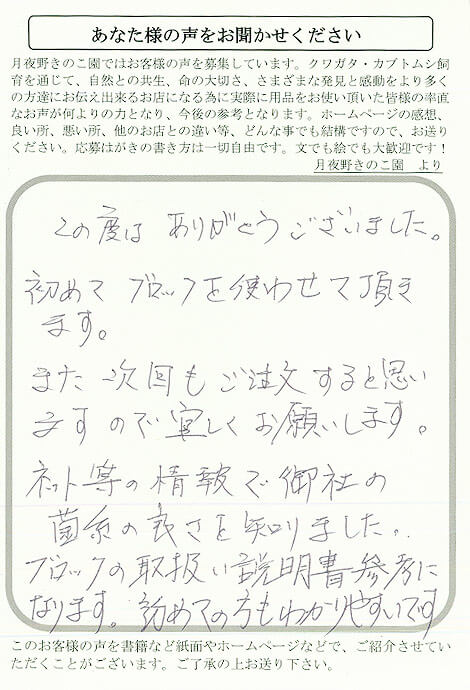 あなた様の声をお聞かせください
月夜野きのこ園ではお客様の声を募集しています。クワガタ・カブトムシ飼
育を通じて、自然との共生、命の大切さ、さまざまな発見と感動をより多く
の方達にお伝え出来るお店になる為に実際に用品をお使い頂いた皆様の率直
なお声が何よりの力となり、今後の参考となります。ホームページの感想、
良い所、悪い所、他のお店との違い等、どんな事でも結構ですので、お送り
ください。応募はがきの書き方は一切自由です。文でも絵でも大歓迎です！
月夜野きのこ園　より
この度は ありがとうございました。
初めて ブロックを使わせて頂き
ます。
また次回もご注文すると思い
ますので宜しくお願いします。
ネット等の情報で御社の
菌糸の良さを知りました。
ブロックの取扱い説明書参考に
なります。初めての方もわかりやすいです
このお客様の声を書籍など紙面やホームページなどで、ご紹介させてい
ただくことがございます。ご了承の上お送り下さい。